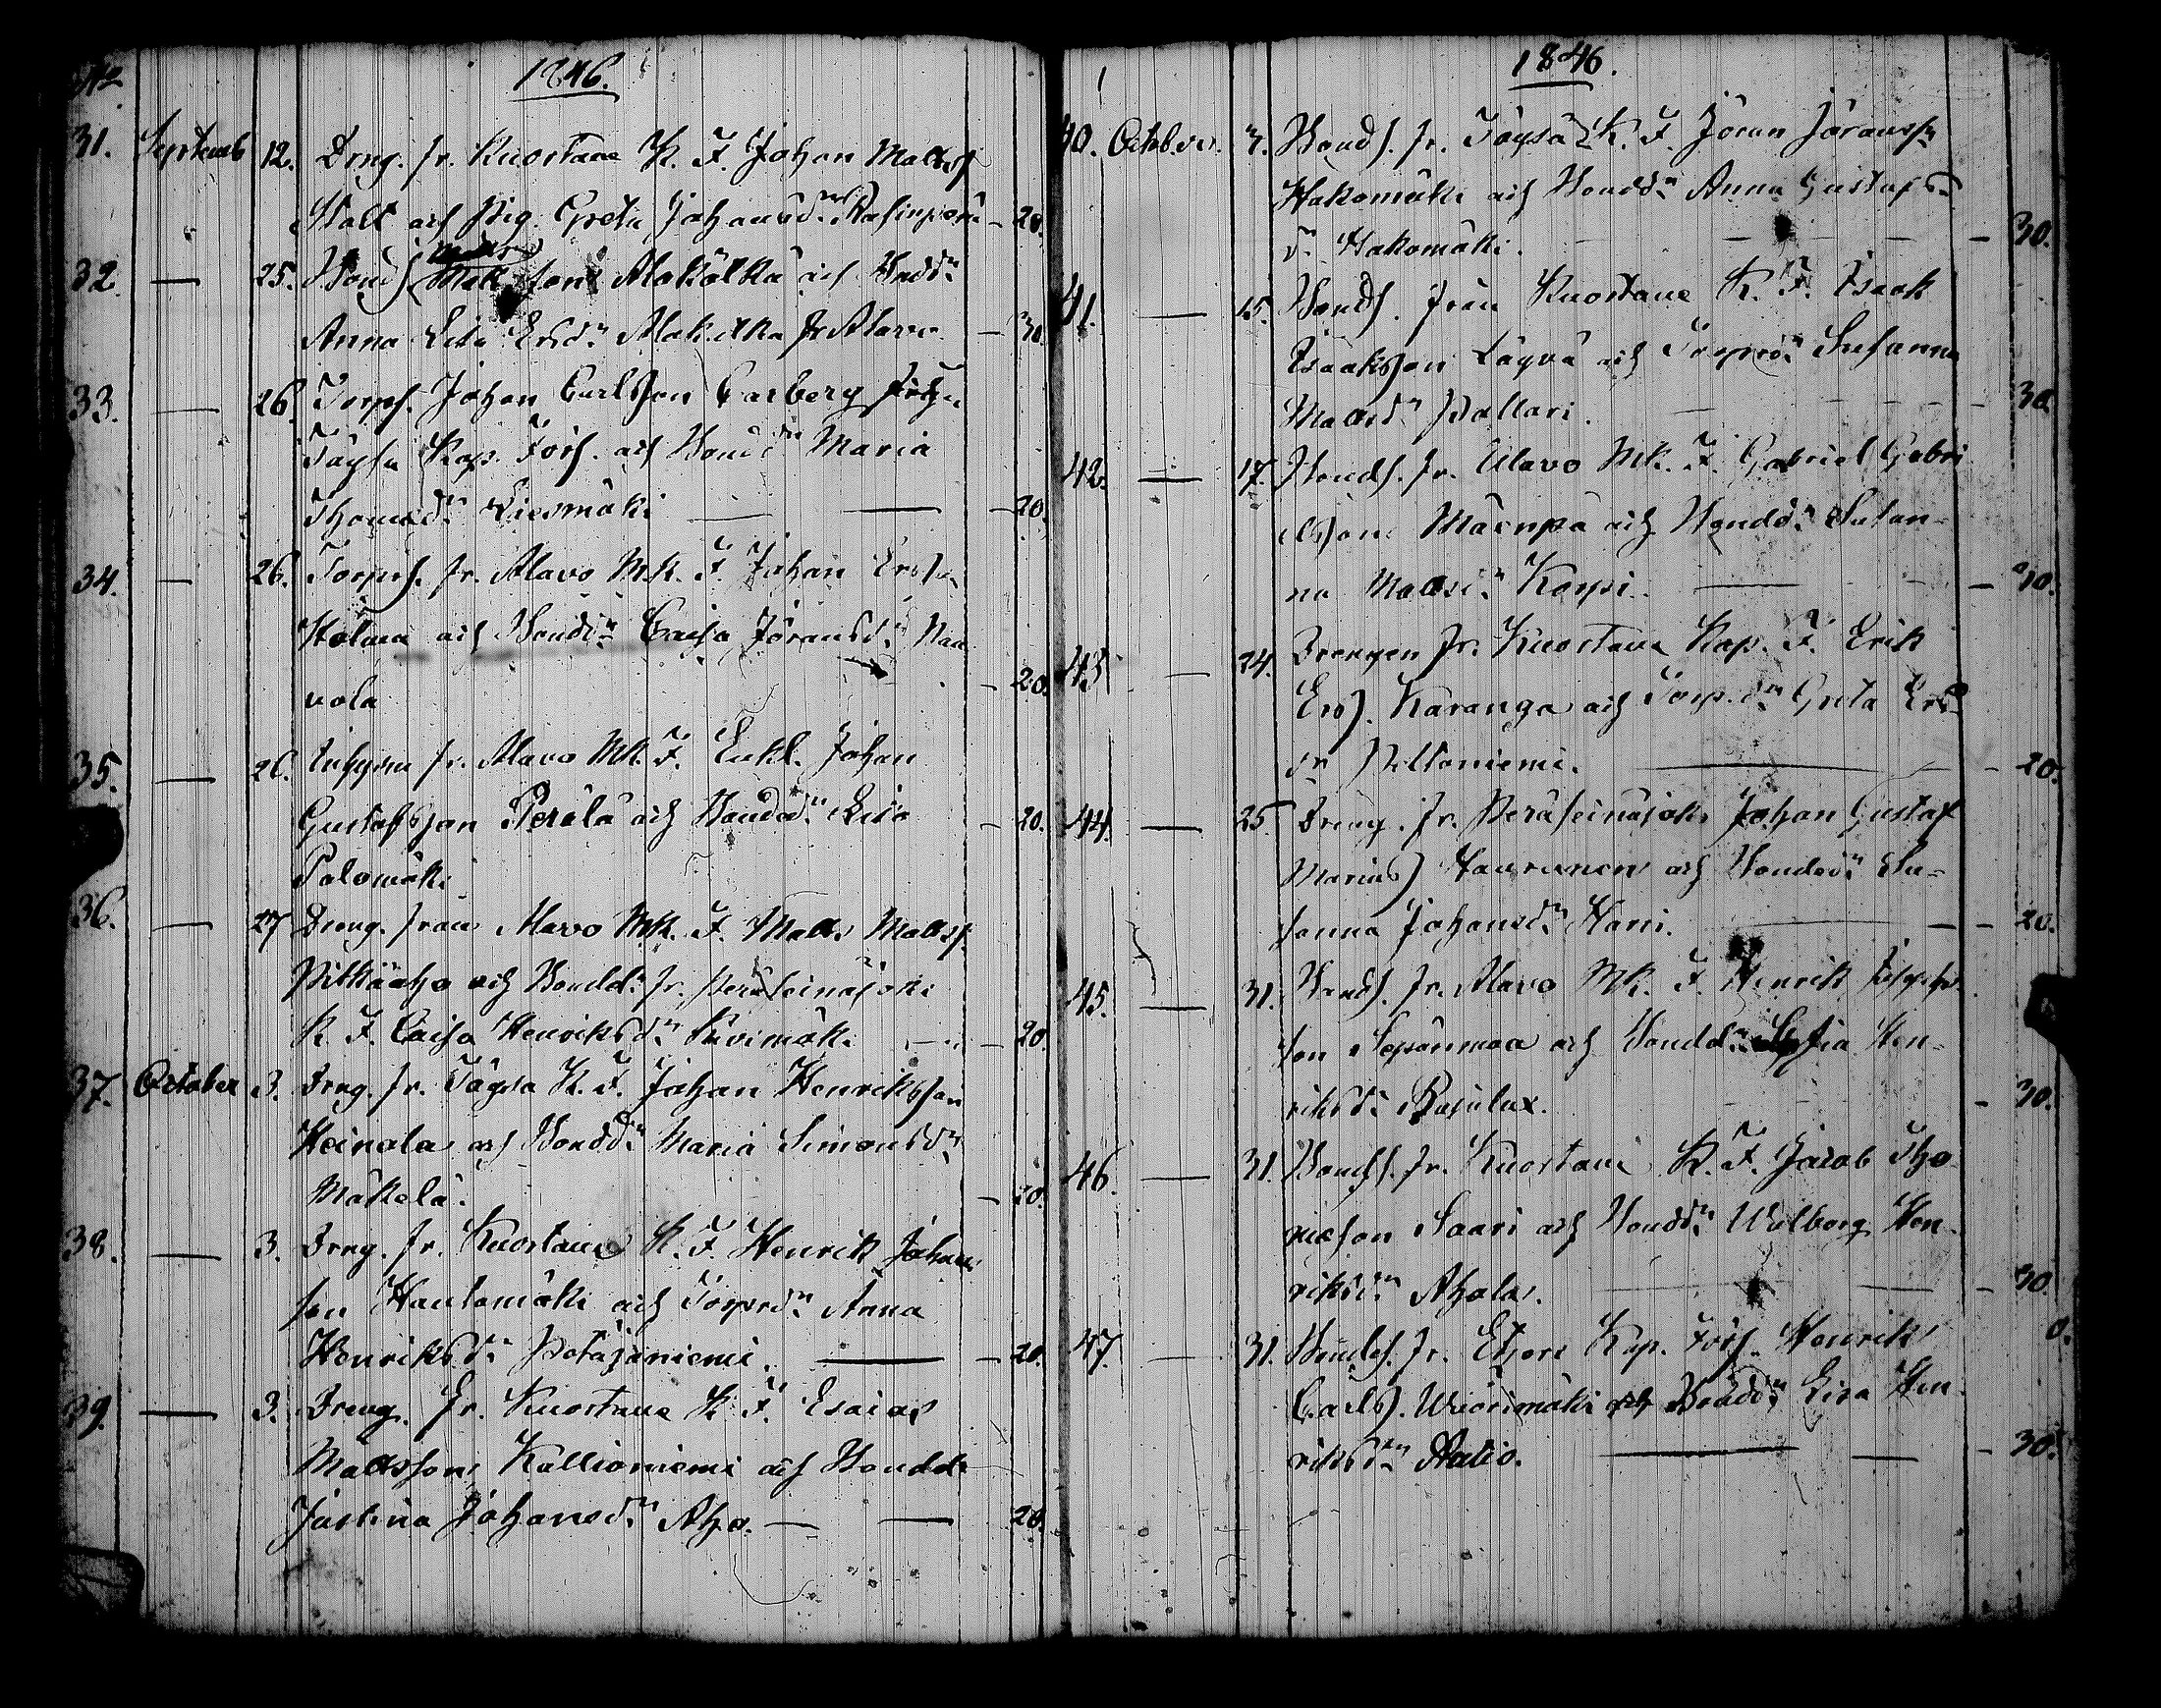 No 1846.
31. Septemb 12. Drng. fr. Kuortane K. F. Johan Mattss
Stolt och Pig. Greta Johansdr - 20.
32. — 25. Bonds Matts son Alakötkä och Bondd:r
Anna Lisa Ersd:r fr Alavo - 30.
33. — 26. Torps. Johan Carlsson Carberg från
Töysä Kap. Förs. och Bondd:r Maria
Thomasd:r Liesmäki — — 20.
34. — 26. Torps. fr. Alavo Mk. F. Johan Erss.
och Bondd:r Caisa Jöransd:r Nau
vola - 20.
35. — 26. Inhyses fr. Alavo Mk. F. Enkl. Johan
Gustafsson Perälä och Bondd:r Lisa - 20.
Palomäki
36. — 27 Dreng. från Alavo MK. F. Matts Mattss.
Pitkäaho och Bondd:r fr. Peräseinäjoki
K. F. Caisa Henriksd:r - 20
37. October 3. Drng. fr. Töysä K. F. Johan Henriksson
Heinola och Bondd:r Maria Simonsd:r
Mäkelä. - 20.
38. — 3. Drng. fr. Kuortane K. F. Henrik Johans
son Hautamäki och Torpard:r Anna
Henriksd:r Potäjäniemi. — - 20.
39. — 3. Dreng. fr. Kuortane K F. Esaias
Mattsson Kallioniemi och Bondd:
Justina Johansd:r Aho. — — 20.
1846.
40. October. 3. Bonds. fr. Töysä K. F. Jöran Jöranss
Hakomäki och Bondd:r Anna Gustafs-
dr Hakomäki. - 30.
41. — 15. Bonds. från Kuortane K. F. Isaak
Isaaksson Läyvä och Torpard:r Susanna
Mattsdr Pallari. - 30.
42. — 17. Bonds. fr. Alavo Mk. F. Gabriel Gabri
elsson Mäenpä och Bondd:r Susan-
na Mattsd:r Korpi. — - 30.
43 — 24. Drengen fr. Kuortane Kap. F. Erik
Erss. Karanga och Torp.d:r Greta Ers-
dr Piltoniemi. — - 20.
44. — 25. Dreng. fr. Peräseinäjoki Johan Gustaf
Mariuss Haurunen och Bondd:r Su-
sanna Johansd:r Harri. — - 20.
45. — 31. Bonds. fr. Alavo Mk. F. Henrik
son Sepänmaa och Bondd:r Sofia Hen-
riksd:r - 30.
46. — 31. Bonds. fr. Kuortane K. F. Jacob Tho
masson Saari och Bondd:r Walborg Hen
riksd:r Ahola. — - 30.
47. — 31. Bonds. fr. Etseri Kap. Förs. Henrik
Carlss. och Bondd:r Lisa Hen
riksd:r — — - 30.